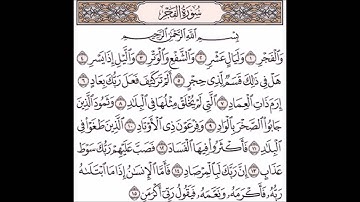 سُورَةُ الفَجْرِ
بِسْمِ اللَّهِ الرَّحْمَٰنِ الرَّحِيمِ
وَالْفَجْرِ ١ وَلَيَالٍ عَشْرٍ ٢ وَالشَّفْعِ وَالْوَتْرِ ٣ وَاللَّيْلِ إِذَا يَسْرِ ٤
هَلْ فِي ذَٰلِكَ قَسَمٌ لِّذِي حِجْرٍ ٥ أَلَمْ تَرَ كَيْفَ فَعَلَ رَبُّكَ بِعَادٍ ٦
إِرَمَ ذَاتِ الْعِمَادِ ٧ الَّتِي لَمْ يُخْلَقْ مِثْلُهَا فِي الْبِلَادِ ٨ وَثَمُودَ الَّذِينَ
جَابُوا الصَّخْرَ بِالْوَادِ ٩ وَفِرْعَوْنَ ذِي الْأَوْتَادِ ١٠ الَّذِينَ طَغَوْا فِي
الْبِلَادِ ١١ فَأَكْثَرُوا فِيهَا الْفَسَادَ ١٢ فَصَبَّ عَلَيْهِمْ رَبُّكَ سَوْطَ
عَذَابٍ ١٣ إِنَّ رَبَّكَ لَبِالْمِرْصَادِ ١٤ فَأَمَّا الْإِنسَانُ إِذَا مَا ابْتَلَاهُ
رَبُّهُ فَأَكْرَمَهُ وَنَعَّمَهُ فَيَقُولُ رَبِّي أَكْرَمَنِ ١٥